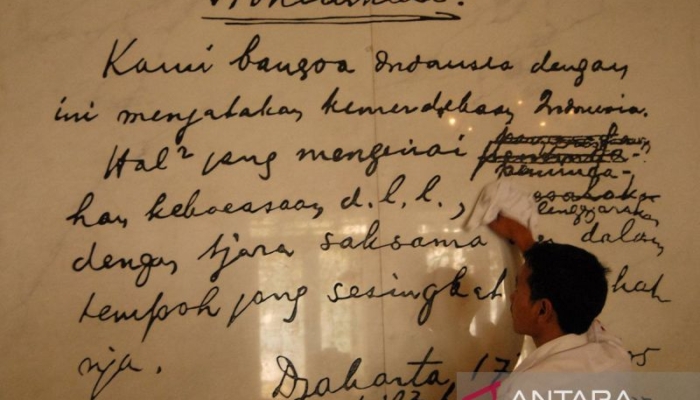 Proklamasi.
Kami bangsa Indonesia dengan
ini menjatakan kemerdekaan Indonesia.
Hal² jang mengenai
peminda-
han kekoeasaan d.l.l.,
diselenggarakan
dengan tjara saksama dalam
tempoh jang sesingkat
nja.
Djakarta, 17
ANTARA